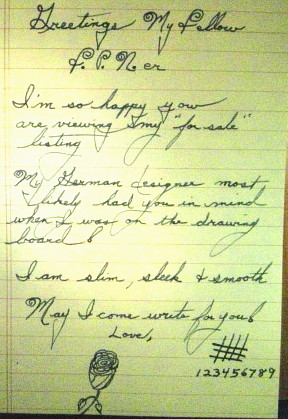 Greetings My Fellow
F. P. N. er
I'm so happy you
are viewing my "for sale"
listing
My German designer most
likely had you in mind
when I was on the drawing
board
I am slim, sleek & smooth
May I come write for you
Love,
123456789